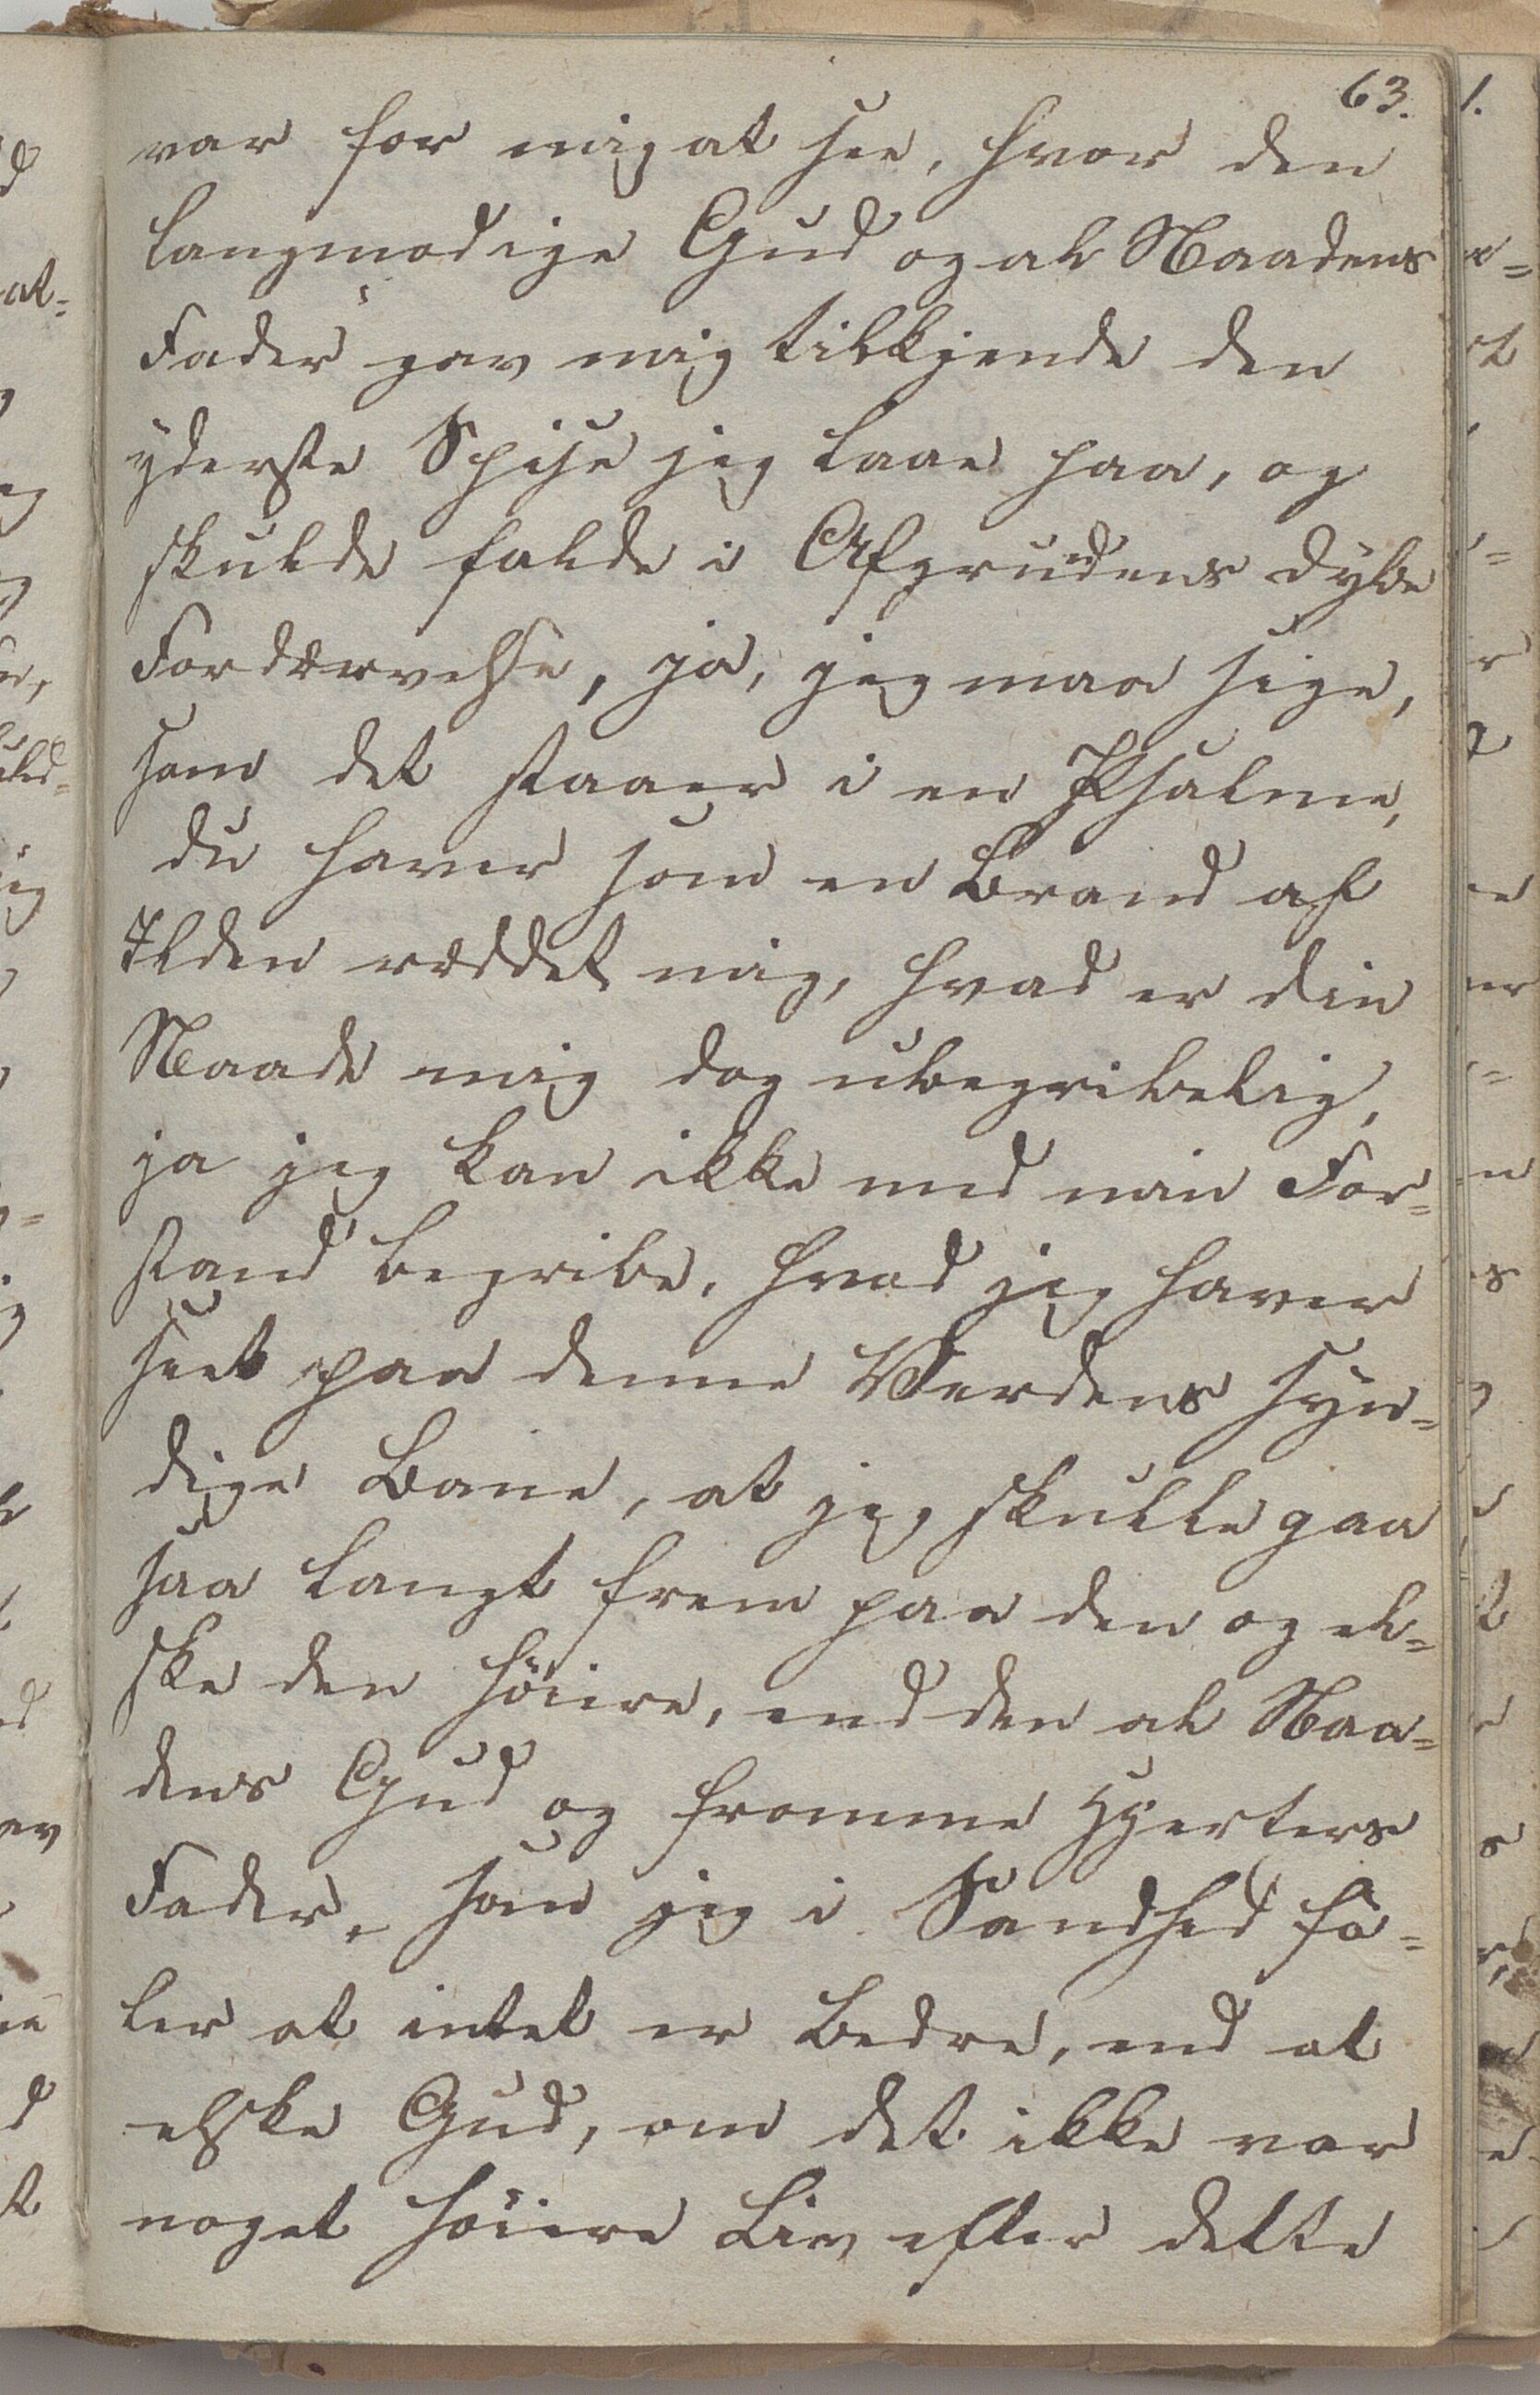 63.
var for mig at see, hvor den
langmodige Gud og al Naadens
Fader gav mig tilkjende den
yderste Spise jeg laae paa, og
skulde falde i Afgrundens dybe
Fordærvelse, ja, jeg maa sige,
som det staaer i en Psalme,
du haver som en Brand af
Ilden reddet mig, hvad er din
Naade mig dog ubegribelig,
ja jeg kan ikke med min For=
stand begribe, hvad jeg haver
seet paa denne Verdens syn=
dige Bane, at jeg skulle gaa
saa langt frem paa den og el=
ske den höiere, end den al Naa=
dens Gud og fromme Hjerters
Fader, som jeg i Sandhed fö=
ler at intet er bedre, end at
elske Gud, om det ikke var
noget höiere Liv efter dette